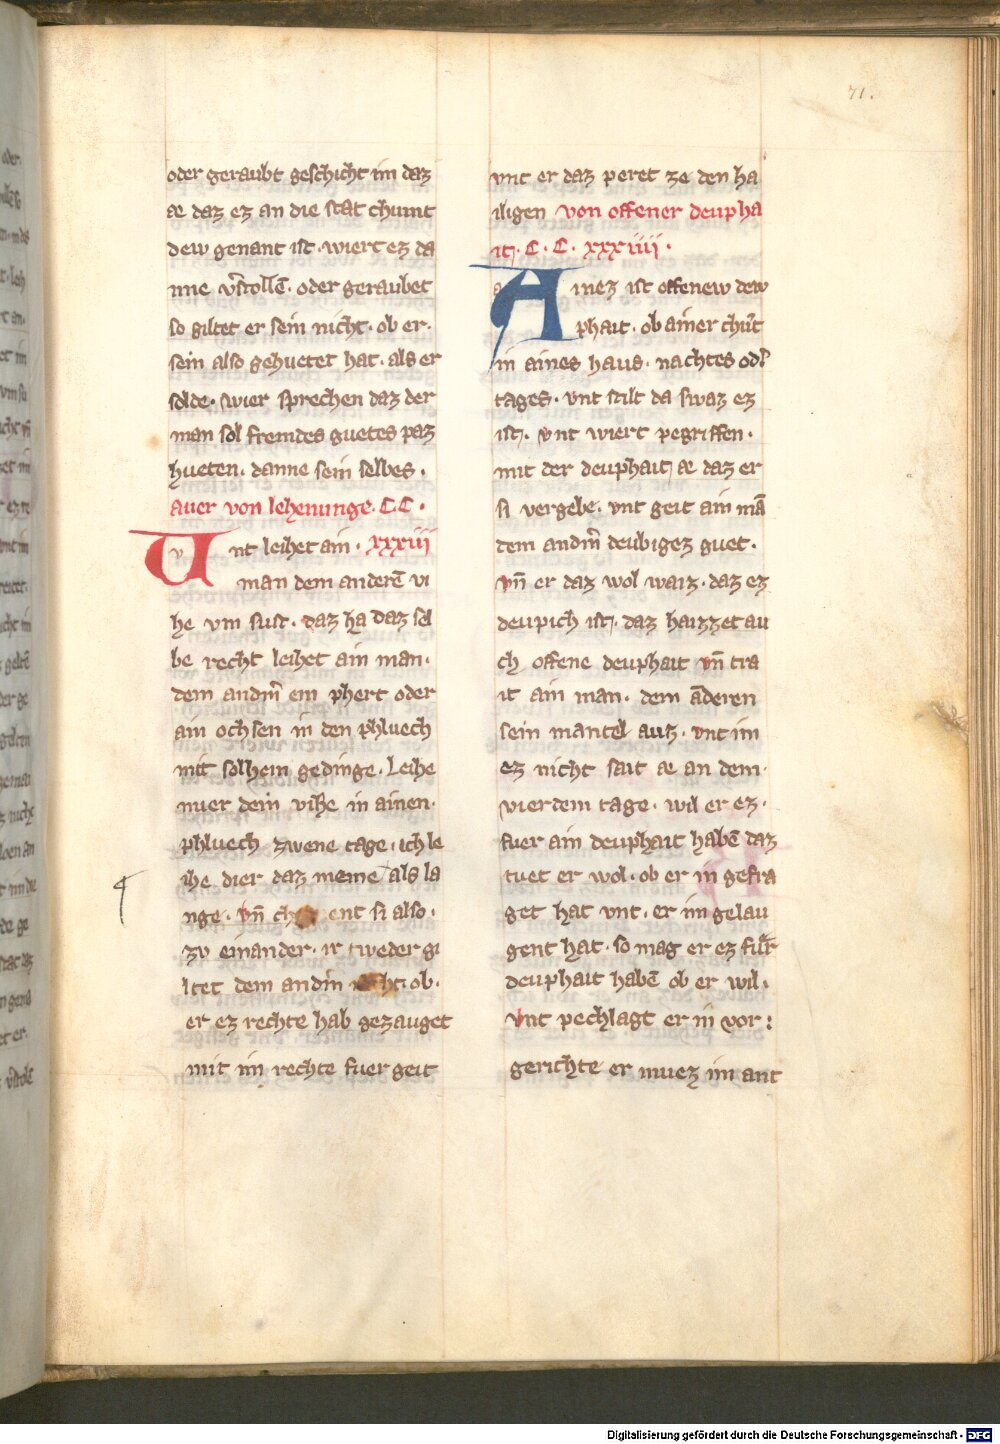 71.
oder geraubt geschicht im daz
ae daz ez an die stat chumt
dew genant ist · wiert ez da
nne v̾stollē · oder geraubet
so giltet er sein nicht · ob er ·
sein also gehuetet hat · als er
solde · Swier sprechen daz der
man sol fremdes guetes paz
hueten · danne sein selbes ·
auer von lehenunge · CC ·
Unt leihet ain · xxxiii
man dem anderē vi
he vm sust · daz ha daz sel
be recht leihet ain man ·
dem andm̄ ein phert oder
ain ochsen in den phluech
mit solhem gedinge · Leihe
mier dein vihe in ainen ·
phluech zwene tage · ich le
ihe dier daz meine als la
nge · vn̄ ch ent si also ·
zv einander · ir tweder gi
ltet dem andm̄ ht · ob ·
er ez rechte hab gezauget
mit im rechte fuer geit
vnt er daz peret ze den ha
iligen von offener deupha
it · C · C · xxxiiii ·
Ainez ist offenew dew
phait · ob ainer chūt
in aines haus · nachtes od̾
tages · vnt stilt da swaz ez
ist · vnt wiert pegriffen ·
mit der deuphait ae daz er
si vergebe · vnt geit ain mā
dem andm̄ deubigez guet ·
vn̄ er daz wol waiz · daz ez
deupich ist · daz haizzet au
ch offene deuphait vn̄ tra
it ain man · dem āderen
sein mantel auz · vnt im
ez nicht sait ae an dem ·
vierdem tage · wil er ez ·
fuer ain deuphait habē daz
tuet er wol · ob er in gefra
get hat vnt · er im gelau
gent hat · so mag er ez fur
deuphait habē ob er wil ·
vnt pechlagt er in vor :
gerichte er muez im ant
Digitalisierung gefördert durch die Deutsche Forschungsgemeinschaft - DFG